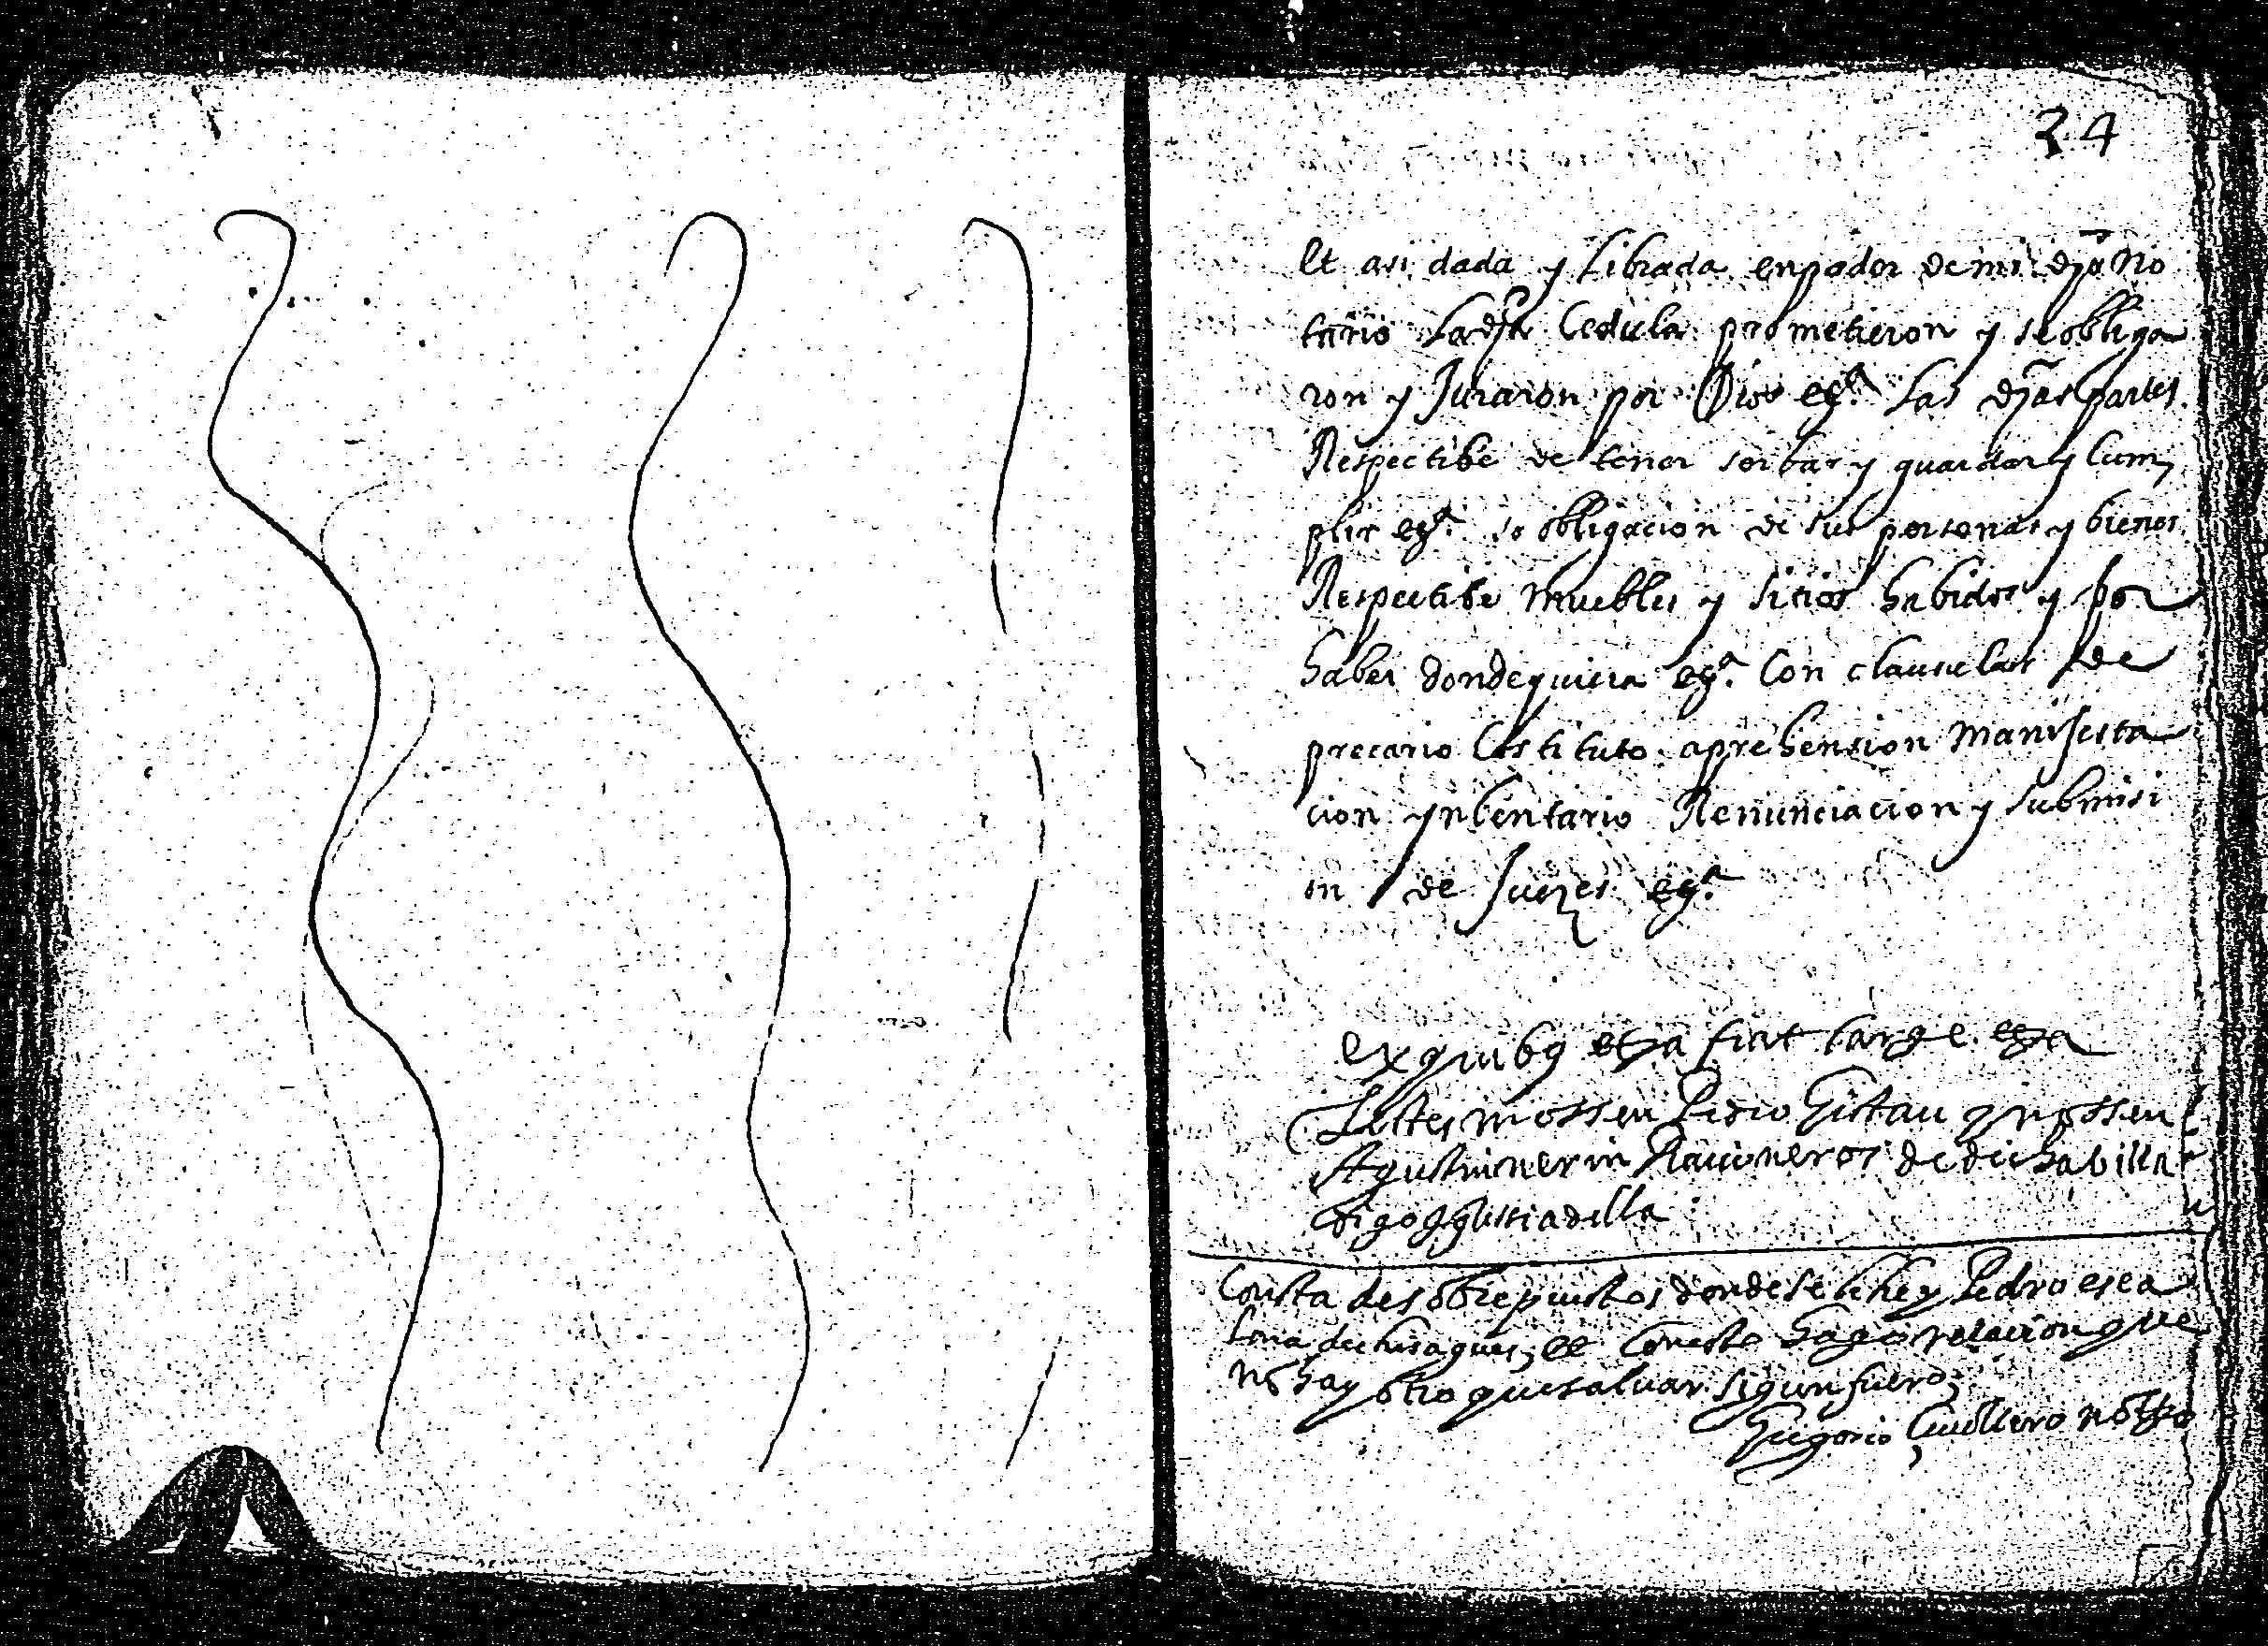 24
Et asi dada y librada en poder de mi dho No
tario la dha Cedula prometieron y se obliga
ron y Juraron por Dios etª las dhas partes
Respectibe de tener serbar y guardar y Cum
plir etª so obligacion de sus personas y bienes
Respectibe muebles y sitios habidos y por
haber dondequiera etª Con clausulas de
precario Costituto aprehension Manifesta
cion ynbentario Renunciacion y submisi
on de Juezes etª
Ex quibus fiat large
Testes mossen Pedro Gistau y mossen
Agustin nerin Racioneros de dicha billa
digo Iglesia della
Consta de sobrepuestos donde se lehe y Pedro
de chisagues, et Con esto hago relacion que
no hay otro que saluar sigun fuero
Gregorio Guillero notº